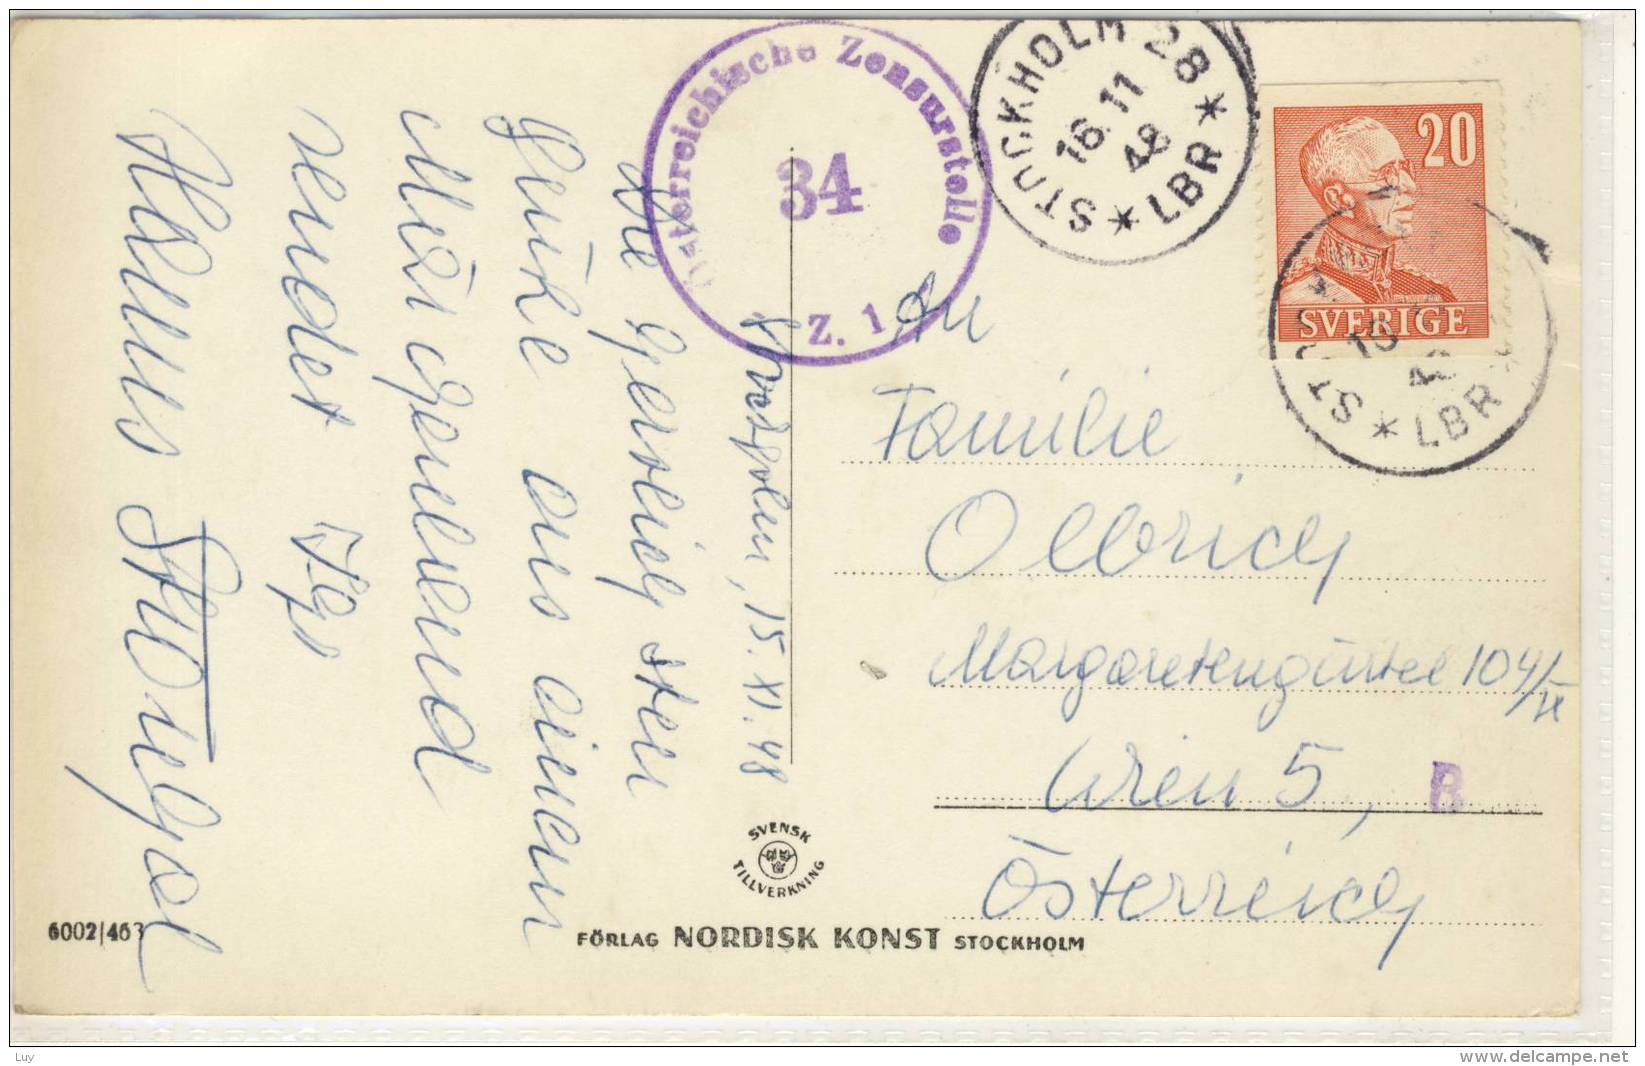 Österreichische Zensurstelle
34
Z. 1
STOCKHOLM 28
16.11
48
LBR
20
SVERIGE
LBR
15. XI. 48
die herzlichsten
Grüße aus einem
Mädi
sendet Ihr
Hannes
An
Familie
Olbrich
Margaretengürtel 104/
Wien 5,
B
Österreich
SVENSK
TILLVERKNING
6002/463
FÖRLAG NORDISK KONST STOCKHOLM
Luy
delcampe.net